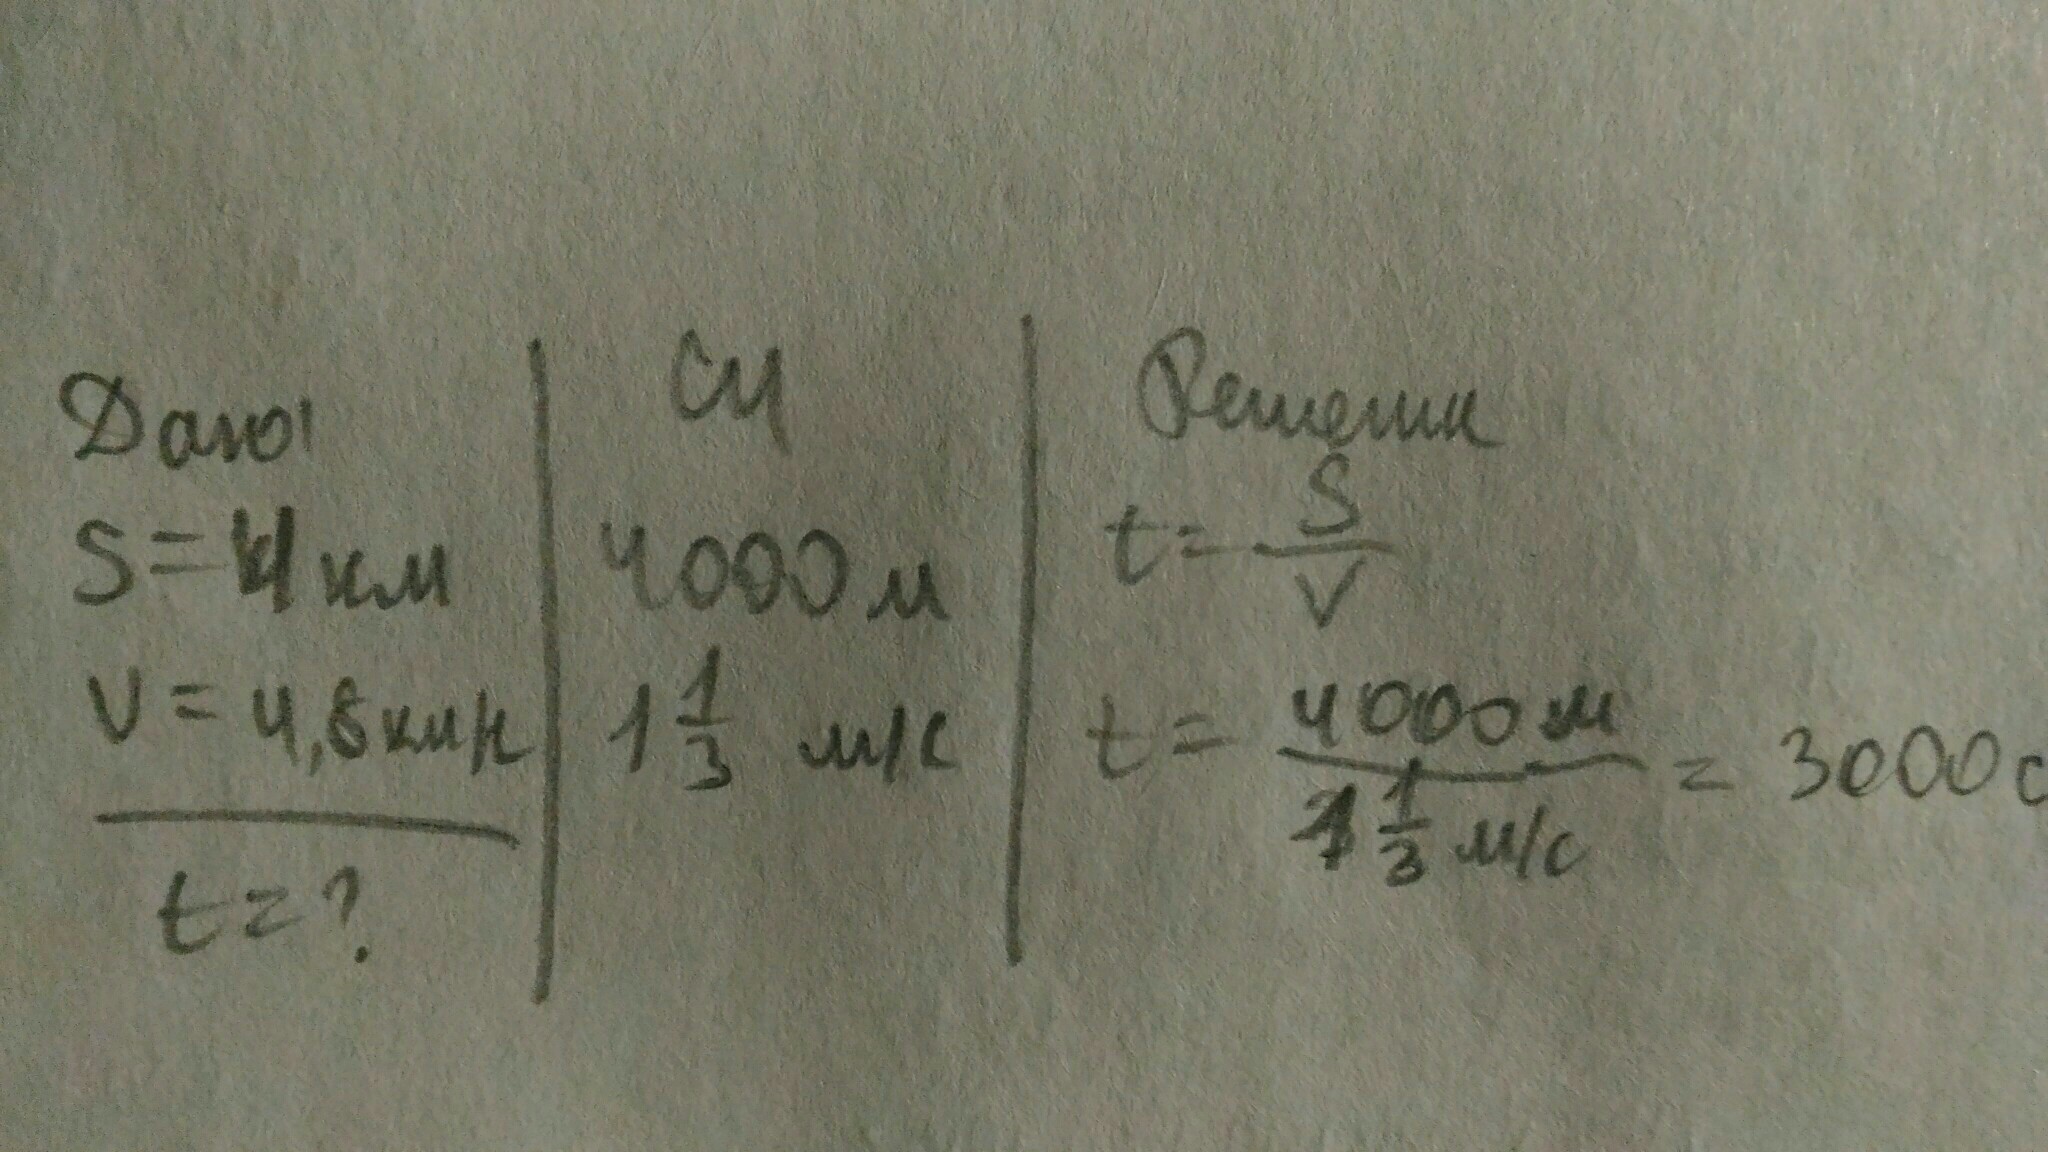 Дано
S = 4 км
V = 4,8 км/ч
t = ?
СИ
4000 м
1 1/3 м/с
Решение
t = S/V
t = 4000 м / 1 1/3 м/с = 3000 с